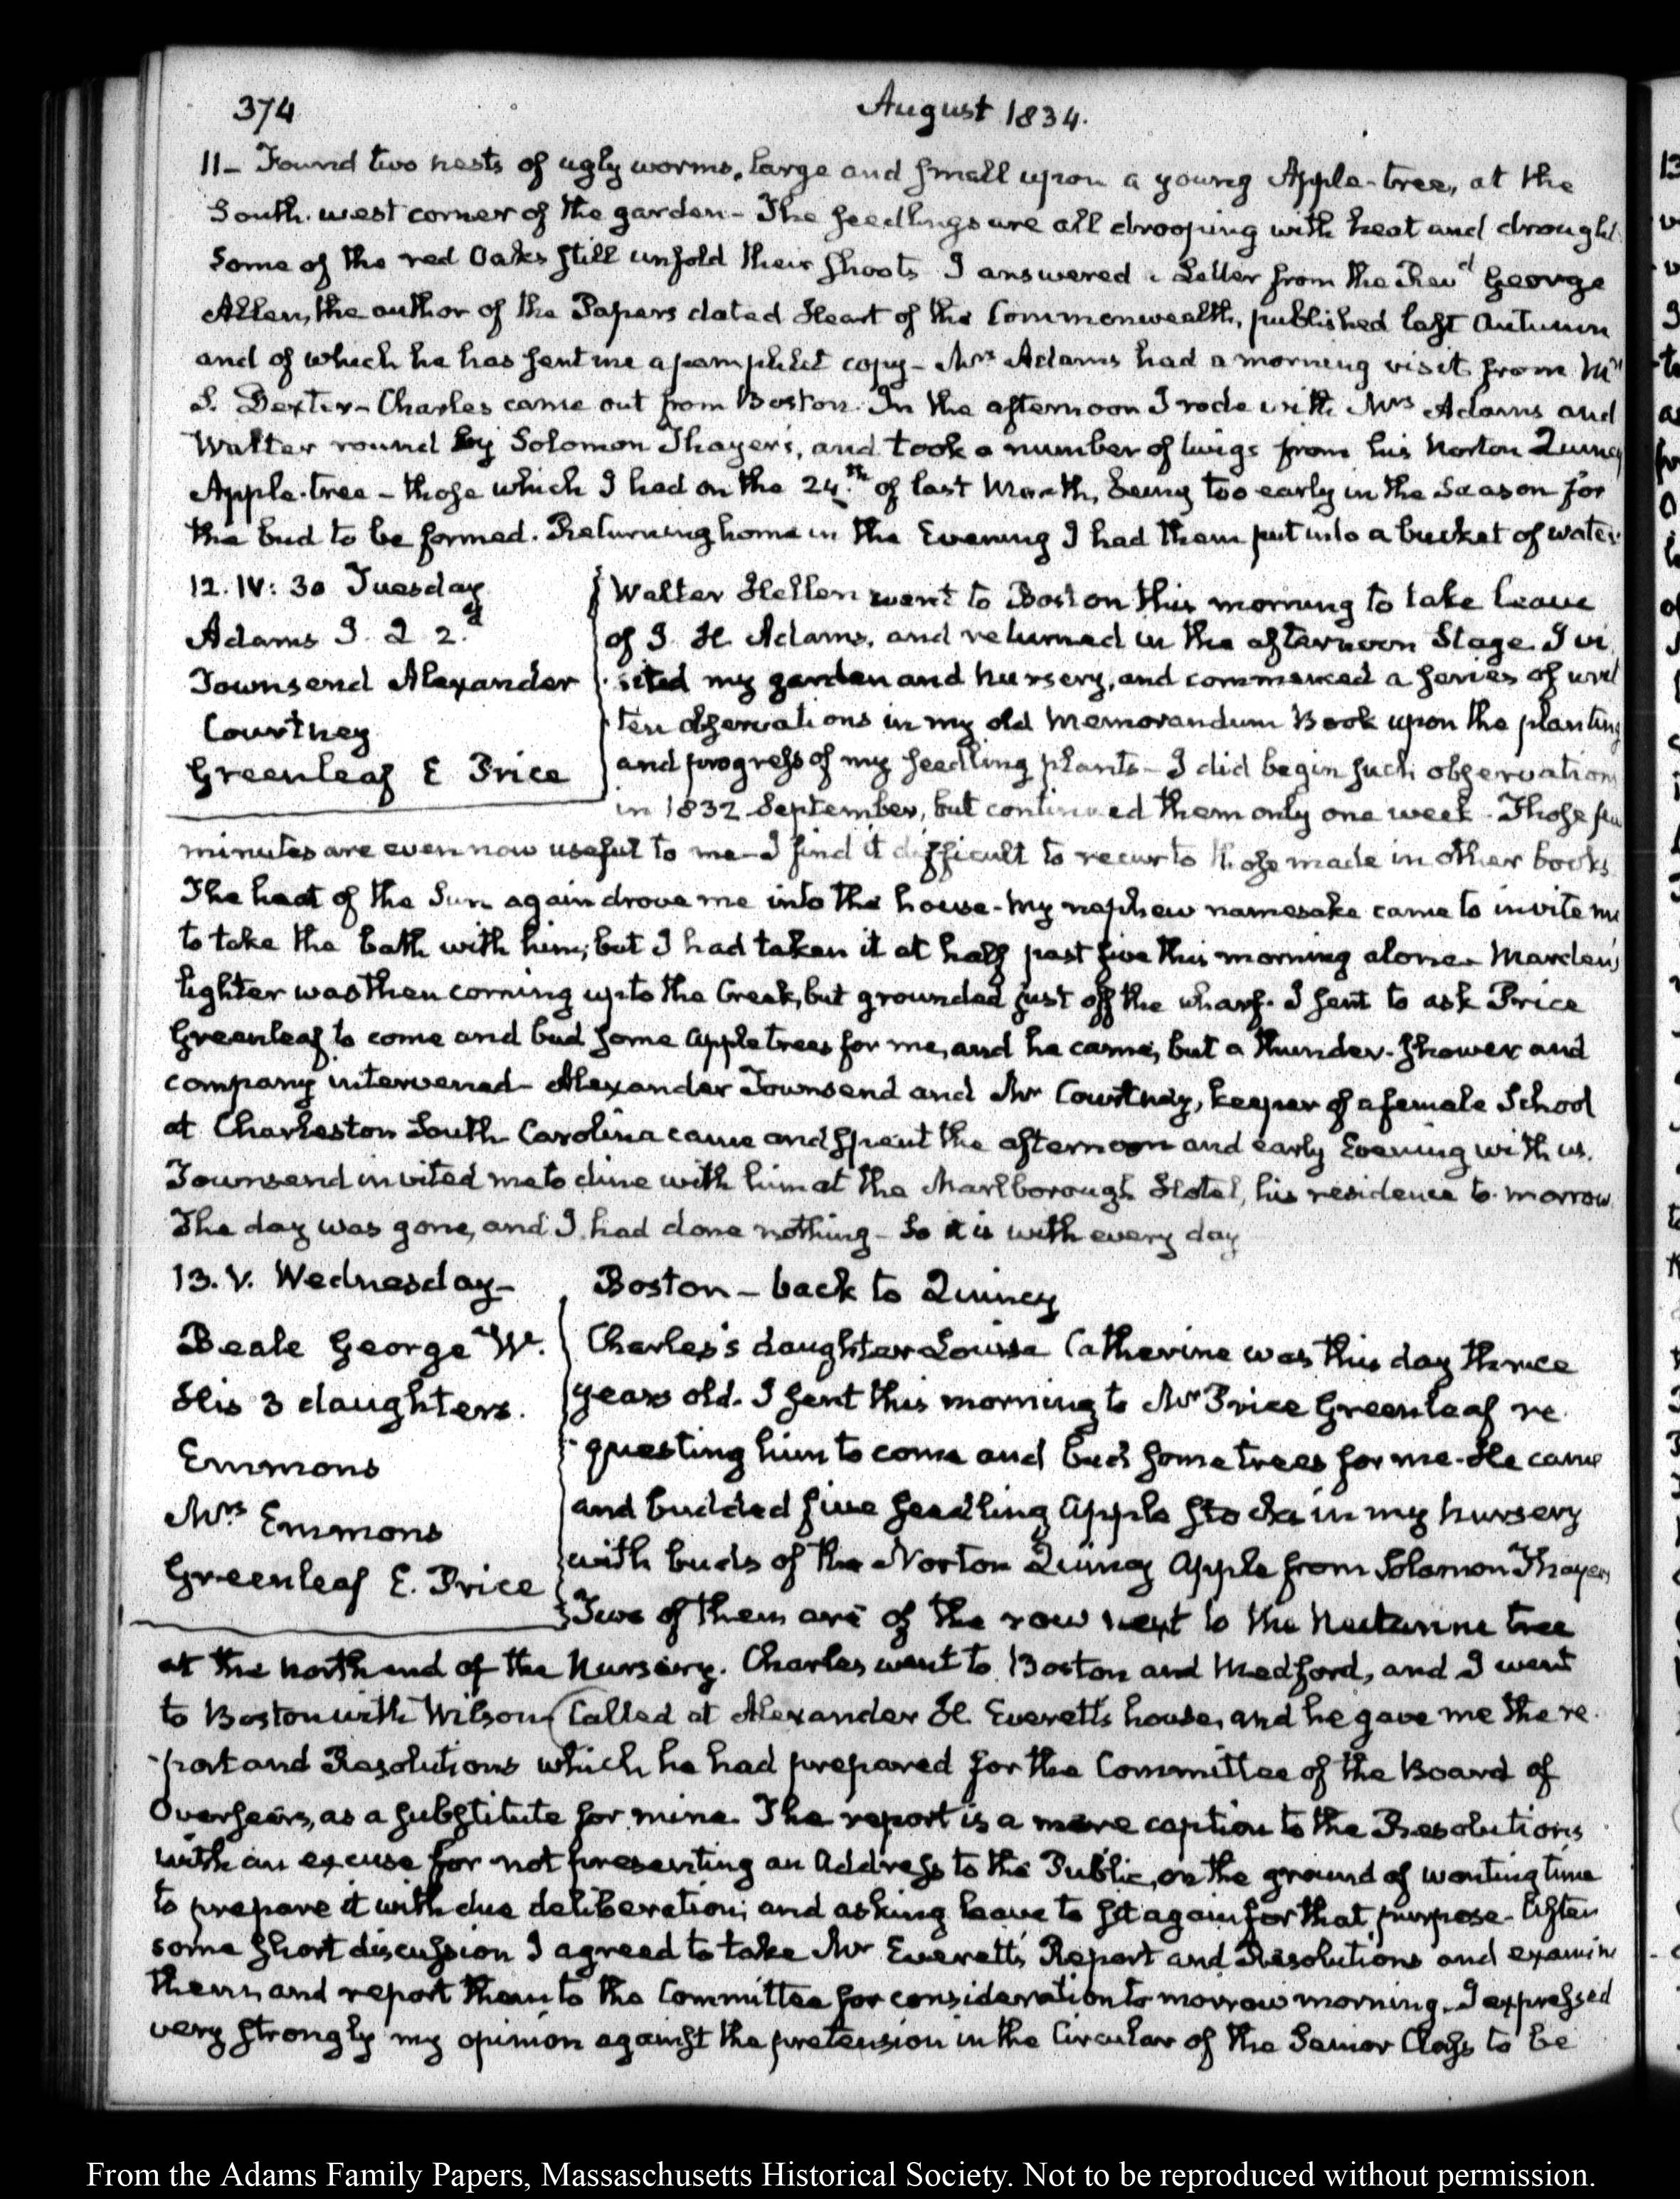 374
August 1834.
11- Found two nests of ugly worms, large and small upon a young Apple-tree, at the
South-west corner of the garden- The seedlings are all drooping with heat and drought
Some of the red Oaks still unfold their shoots I answered a Letter from the Revd George
Allen, the author of the Papers dated Heart of the Commonwealth, published last Autumn
and of which he has sent me a pamphlet copy- Mrs Adams had a morning visit from Mrs
S. Dexter- Charles came out from Boston. In the afternoon I rode with Mrs Adams and
Walter round by Solomon Thayer's, and took a number of twigs from his Norton Quincy
Apple-tree- those which I had on the 24.th of last Month, being too early in the Season for
the bud to be formed. Returning home in the Evening I had them put into a bucket of water.
12. IV: 30 Tuesday
Adams J. Q 2.d
Townsend Alexander
Courtney
Greenleaf E Price
Walter Hellen went to Boston this morning to take leave
of I. H. Adams, and returned in the afternoon Stage. I vi
sited my garden and nursery, and commenced a series of writ
ten observations in my old Memorandum Book upon the planting
and progress of my seedling plants- I did begin such observations
in 1832 September, but continued them only one week. Those few
minutes are even now useful to me- I find it difficult to recur to those made in other books
The heat of the Sun again drove me into the house- My nephew namesake came to invite me
to take the bath with him; but I had taken it at half past five this morning alone- Marden's
lighter was then coming up to the Creek, but grounded just off the wharf. I sent to ask Price
Greenleaf to come and bud some Apple trees for me, and he came, but a thunder-shower and
company intervened- Alexander Townsend and Mr Courtney, keeper of a female School
at Charleston South-Carolina came and spent the afternoon and early Evening with us.
Townsend invited me to dine with him at the Marlborough Hotel, his residence to-morrow
The day was gone, and I had done nothing- So it is with every day
13. V. Wednesday-
Beale George W.
His 3 daughters.
Emmons
Mrs Emmons
Greenleaf E. Price
Boston- back to Quincy
Charles's daughter Louisa Catherine was this day three
years old. I sent this morning to Mr Price Greenleaf re
questing him to come and bud some trees for me- He came
and budded five seedling Apple stocks in my nursery
with buds of the Norton Quincy Apple from Solomon Thayers
Two of them are of the row next to the Nectarine tree
at the north end of the Nursery. Charles went to Boston and Medford, and I went
to Boston with Wilson Called at Alexander H. Everett's house, and he gave me the re
port and Resolutions which he had prepared for the Committee of the Board of
Overseers, as a substitute for mine. The report is a mere caption to the Resolutions
with an excuse for not presenting an Address to the Public, on the ground of wanting time
to prepare it with due deliberation; and asking leave to sit again for that purpose- After
some short discussion I agreed to take Mr Everett's Report and Resolutions and examine
them, and report them to the Committee for consideration to morrow morning. I expressed
very strongly my opinion against the pretension in the Circular of the Senior Class to be
From the Adams Family Papers, Massachusetts Historical Society. Not to be reproduced without permission.